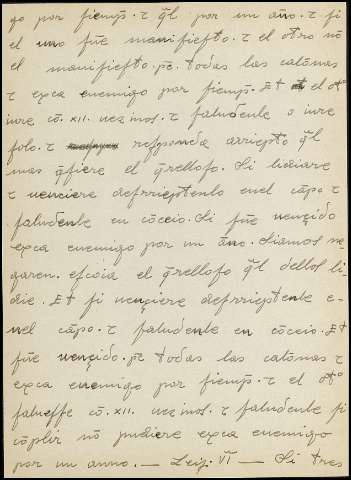 go por siempre. τ q̄l por un año. τ si
el uno fue manifiesto. τ el otro nō
el manifiesto. pe. todas las calōnas
τ exca enemigo por siemp̄. Et el ot°
iure cō. XII. uezinos. τ saludenle o iure
solo. τ responda arriepto q̄l
mas q̄siere el q̄relloso. Si lidiare
τ uenciere desrrieptenlo enel cāpo τ
saludenle en cōceio. Si fue uençido
exca enemigo por un āno. Si amos ne-
garen. escoia el q̄relloso q̄l dellos li-
die. Et si uençiere desrrieptenle e-
nel cāpo. τ saludenle en cōceio. Et
fue uençido. pe todas las calōnas τ
exca enemigo por siemp̄. τ el ot°
saluesse cō. XII. uezinos. τ saludenle si
cōplir nō pudiere exca enemigo
por un anno. — Leig. VI — Si tres